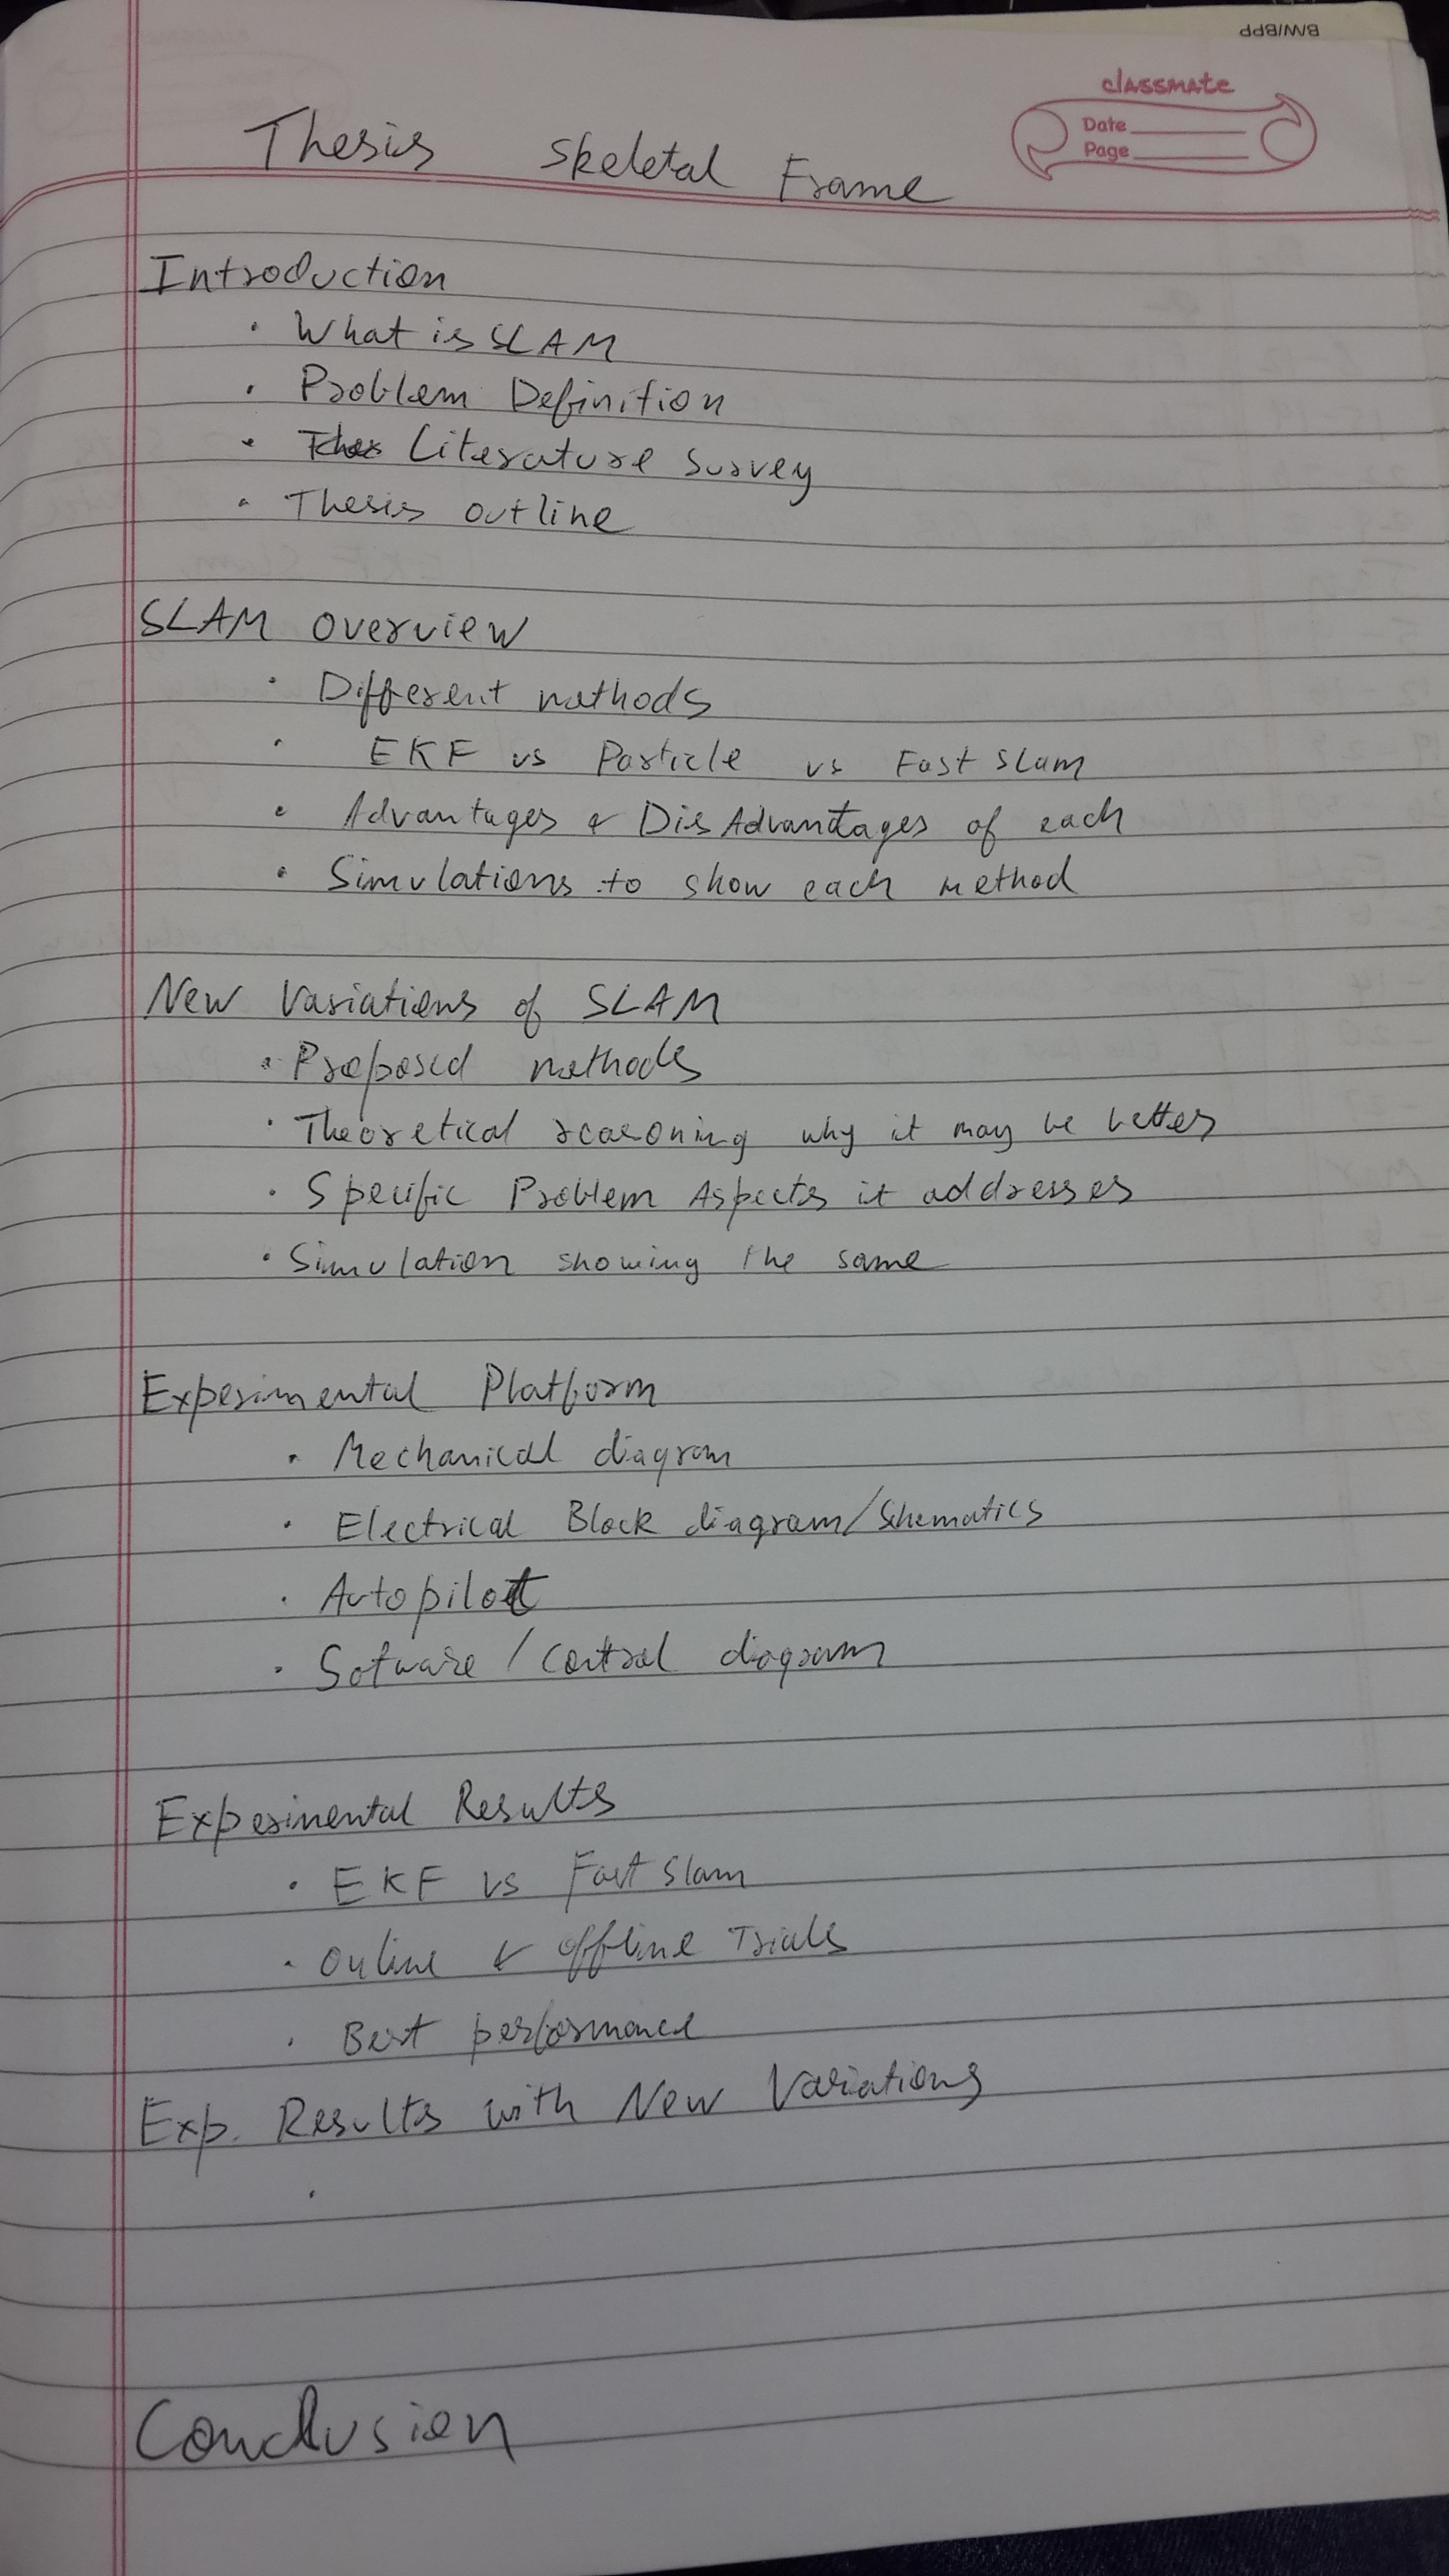 BW/BPP
classmate
Date
Page
Thesis Skeletal Frame
Introduction
• What is SLAM
• Problem Definition
• Literature Survey
• Thesis outline
SLAM overview
• Different methods
• EKF vs Particle vs Fast SLam
• Advantages & DisAdvantages of each
• Simulations to show each method
New Variations of SLAM
• Proposed methods
• Theoretical reasoning why it may be better
• Specific Problem Aspects it addresses
• Simulation showing the same
Experimental Platform
• Mechanical diagram
• Electrical Block diagram/Schematics
• Autopilot
• Sotware / Control diagram
Experimental Results
• EKF vs Fast Slam
• Online & offline Trials
• Best performance
Exp. Results with New Variations
•
Conclusion